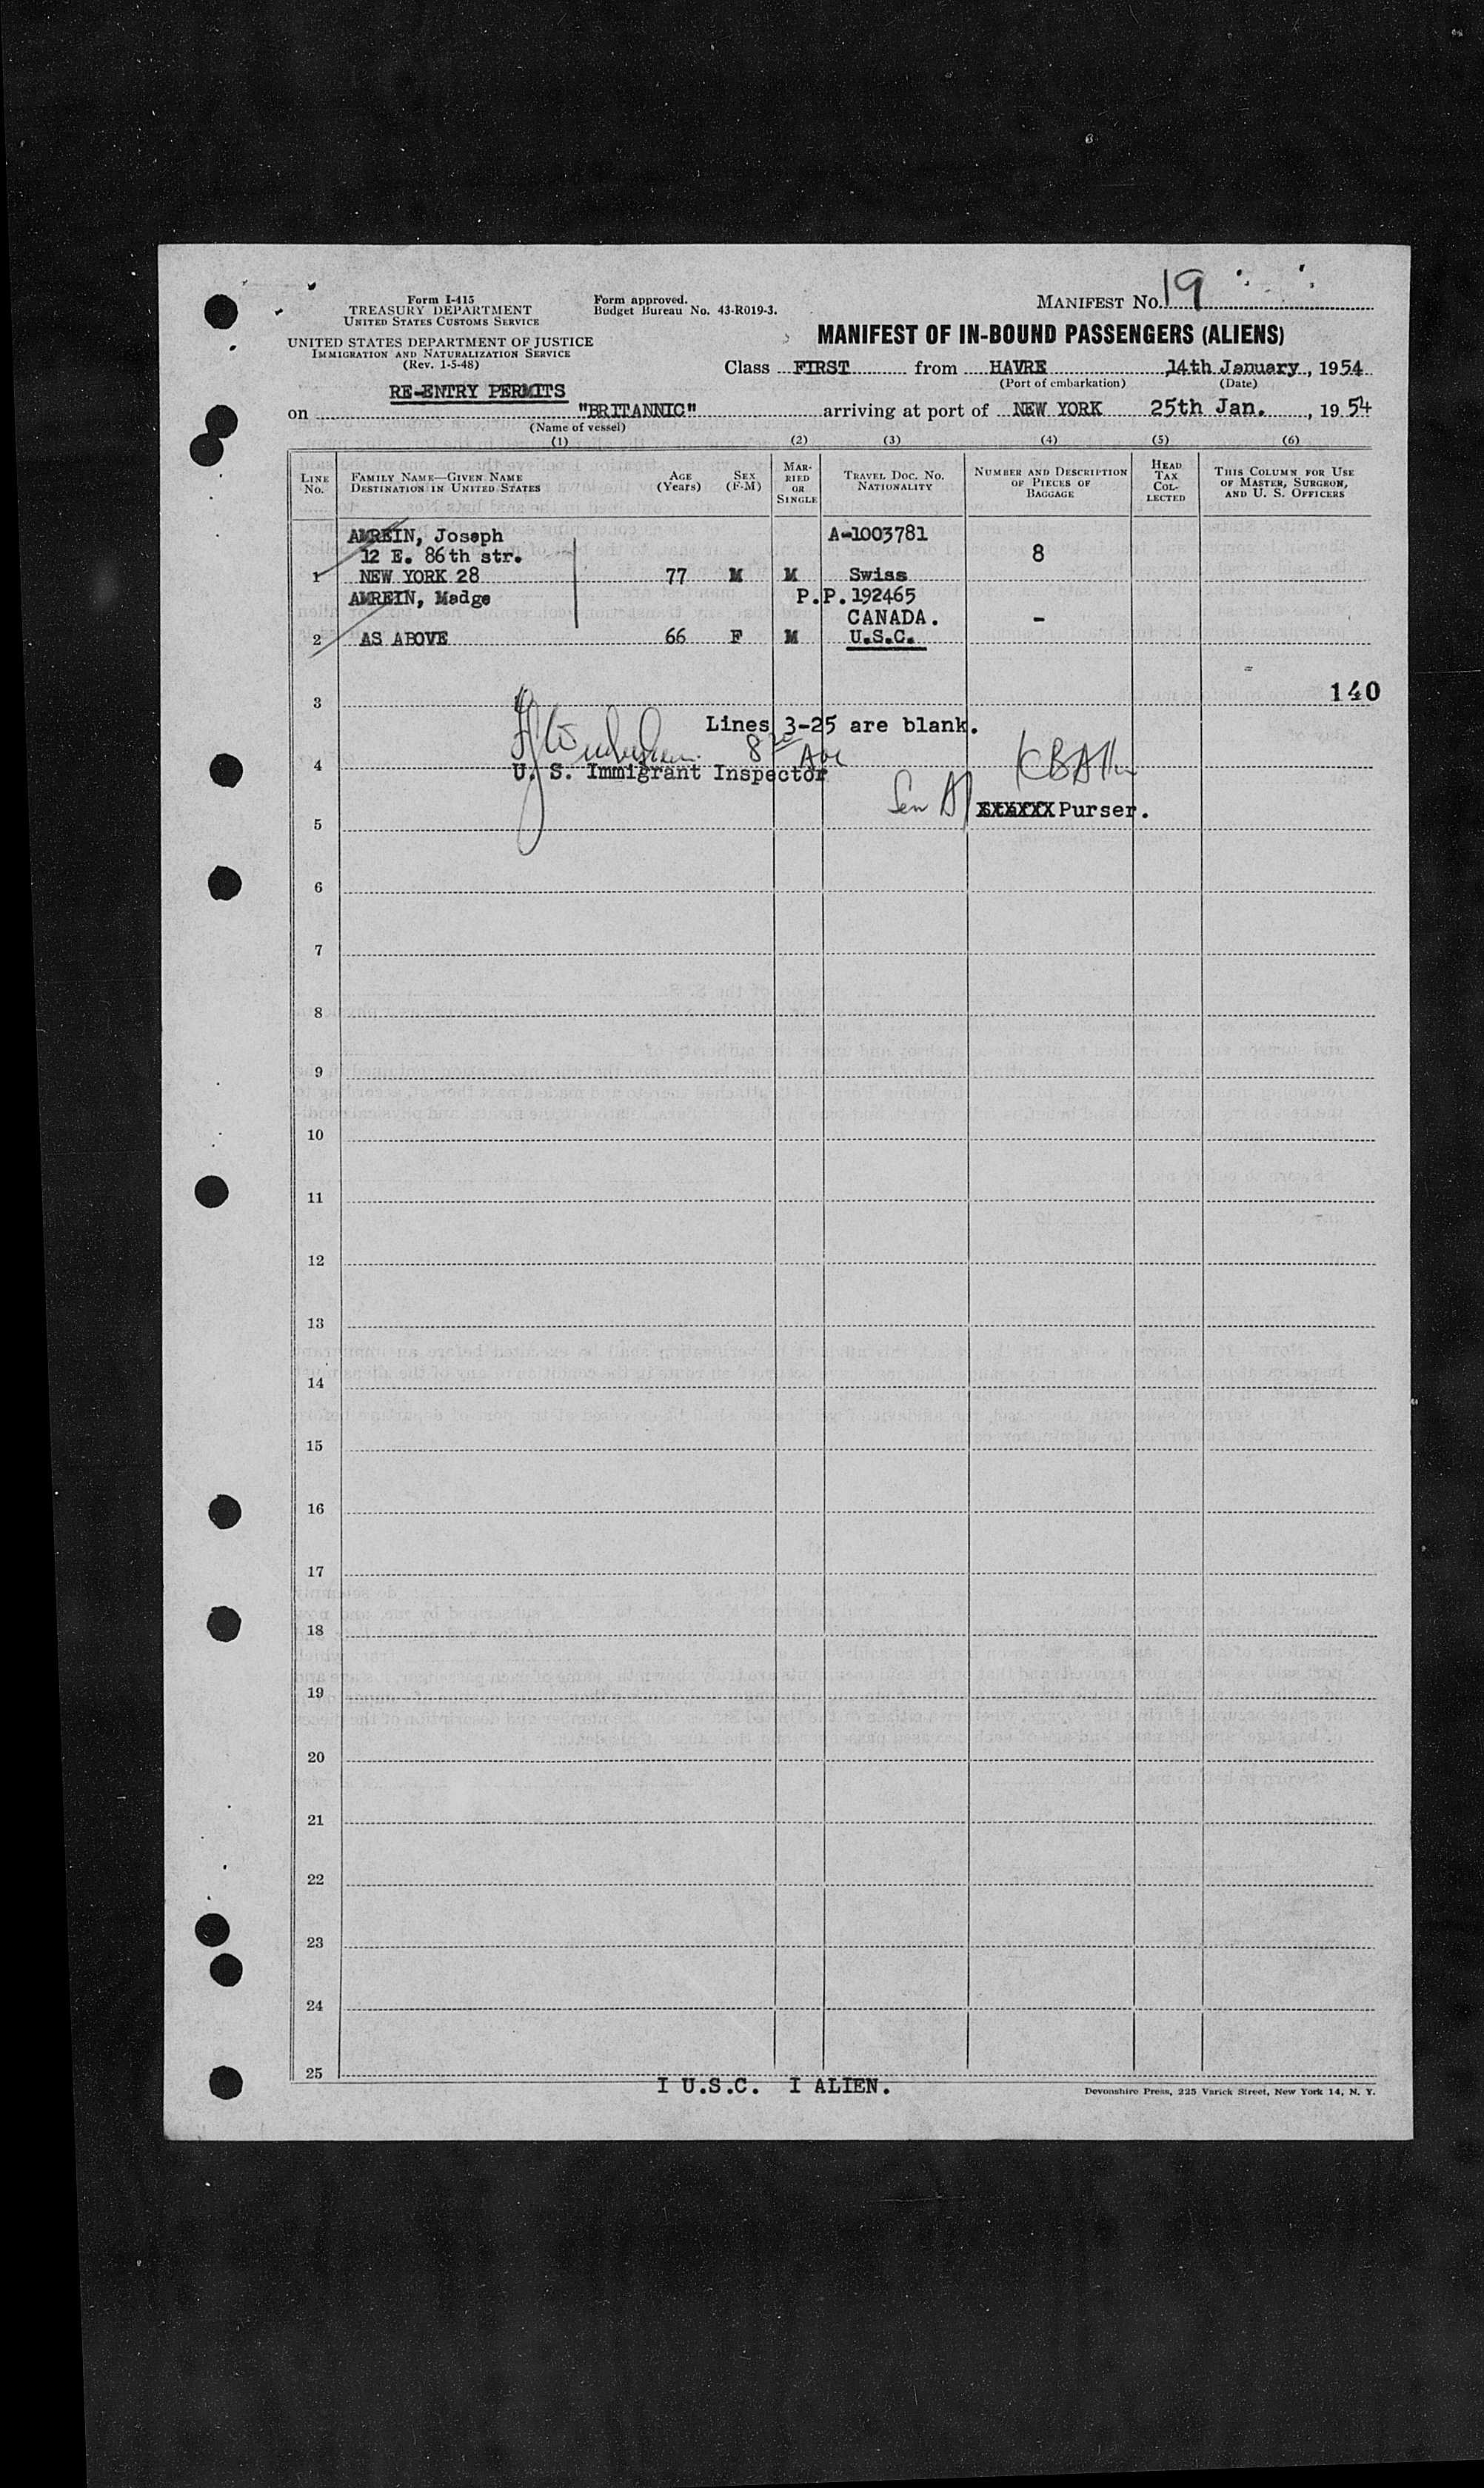 Form I-415
TREASURY DEPARTMENT
UNITED STATES CUSTOMS SERVICE
UNITED STATES DEPARTMENT OF JUSTICE
IMMIGRATION AND NATURALIZATION SERVICE
(Rev. 1-5-48)
Form approved.
Budget Bureau No. 43-R019-3.
MANIFEST NO. 19
MANIFEST OF IN-BOUND PASSENGERS (ALIENS)
Class FIRST from HAVRE 14th January, 1954
(Port of embarkation) (Date)
RE-ENTRY PERMITS
on "BRITANNIC" arriving at port of NEW YORK 25th Jan., 1954
(Name of vessel)
(1) (2) (3) (4) (5) (6)
LINE NO. FAMILY NAME—GIVEN NAME DESTINATION IN UNITED STATES AGE (Years) SEX (F-M) MARRIED OR SINGLE TRAVEL DOC. NO. NATIONALITY NUMBER AND DESCRIPTION OF PIECES OF BAGGAGE HEAD TAX COLLECTED THIS COLUMN FOR USE OF MASTER, SURGEON, AND U. S. OFFICERS
AMREIN, Joseph A-1003781
12 E. 86th str. 8
1 NEW YORK 28 77 M M Swiss
AMREIN, Madge P.P. 192465
CANADA. -
2 AS ABOVE 66 F M U.S.C.
140
3
Lines 3-25 are blank.
4
U. S. Immigrant Inspector
XXXXXX Purser.
5
6
7
8
9
10
11
12
13
14
15
16
17
18
19
20
21
22
23
24
25
I U.S.C. I ALIEN.
Devonshire Press, 225 Varick Street, New York 14, N. Y.